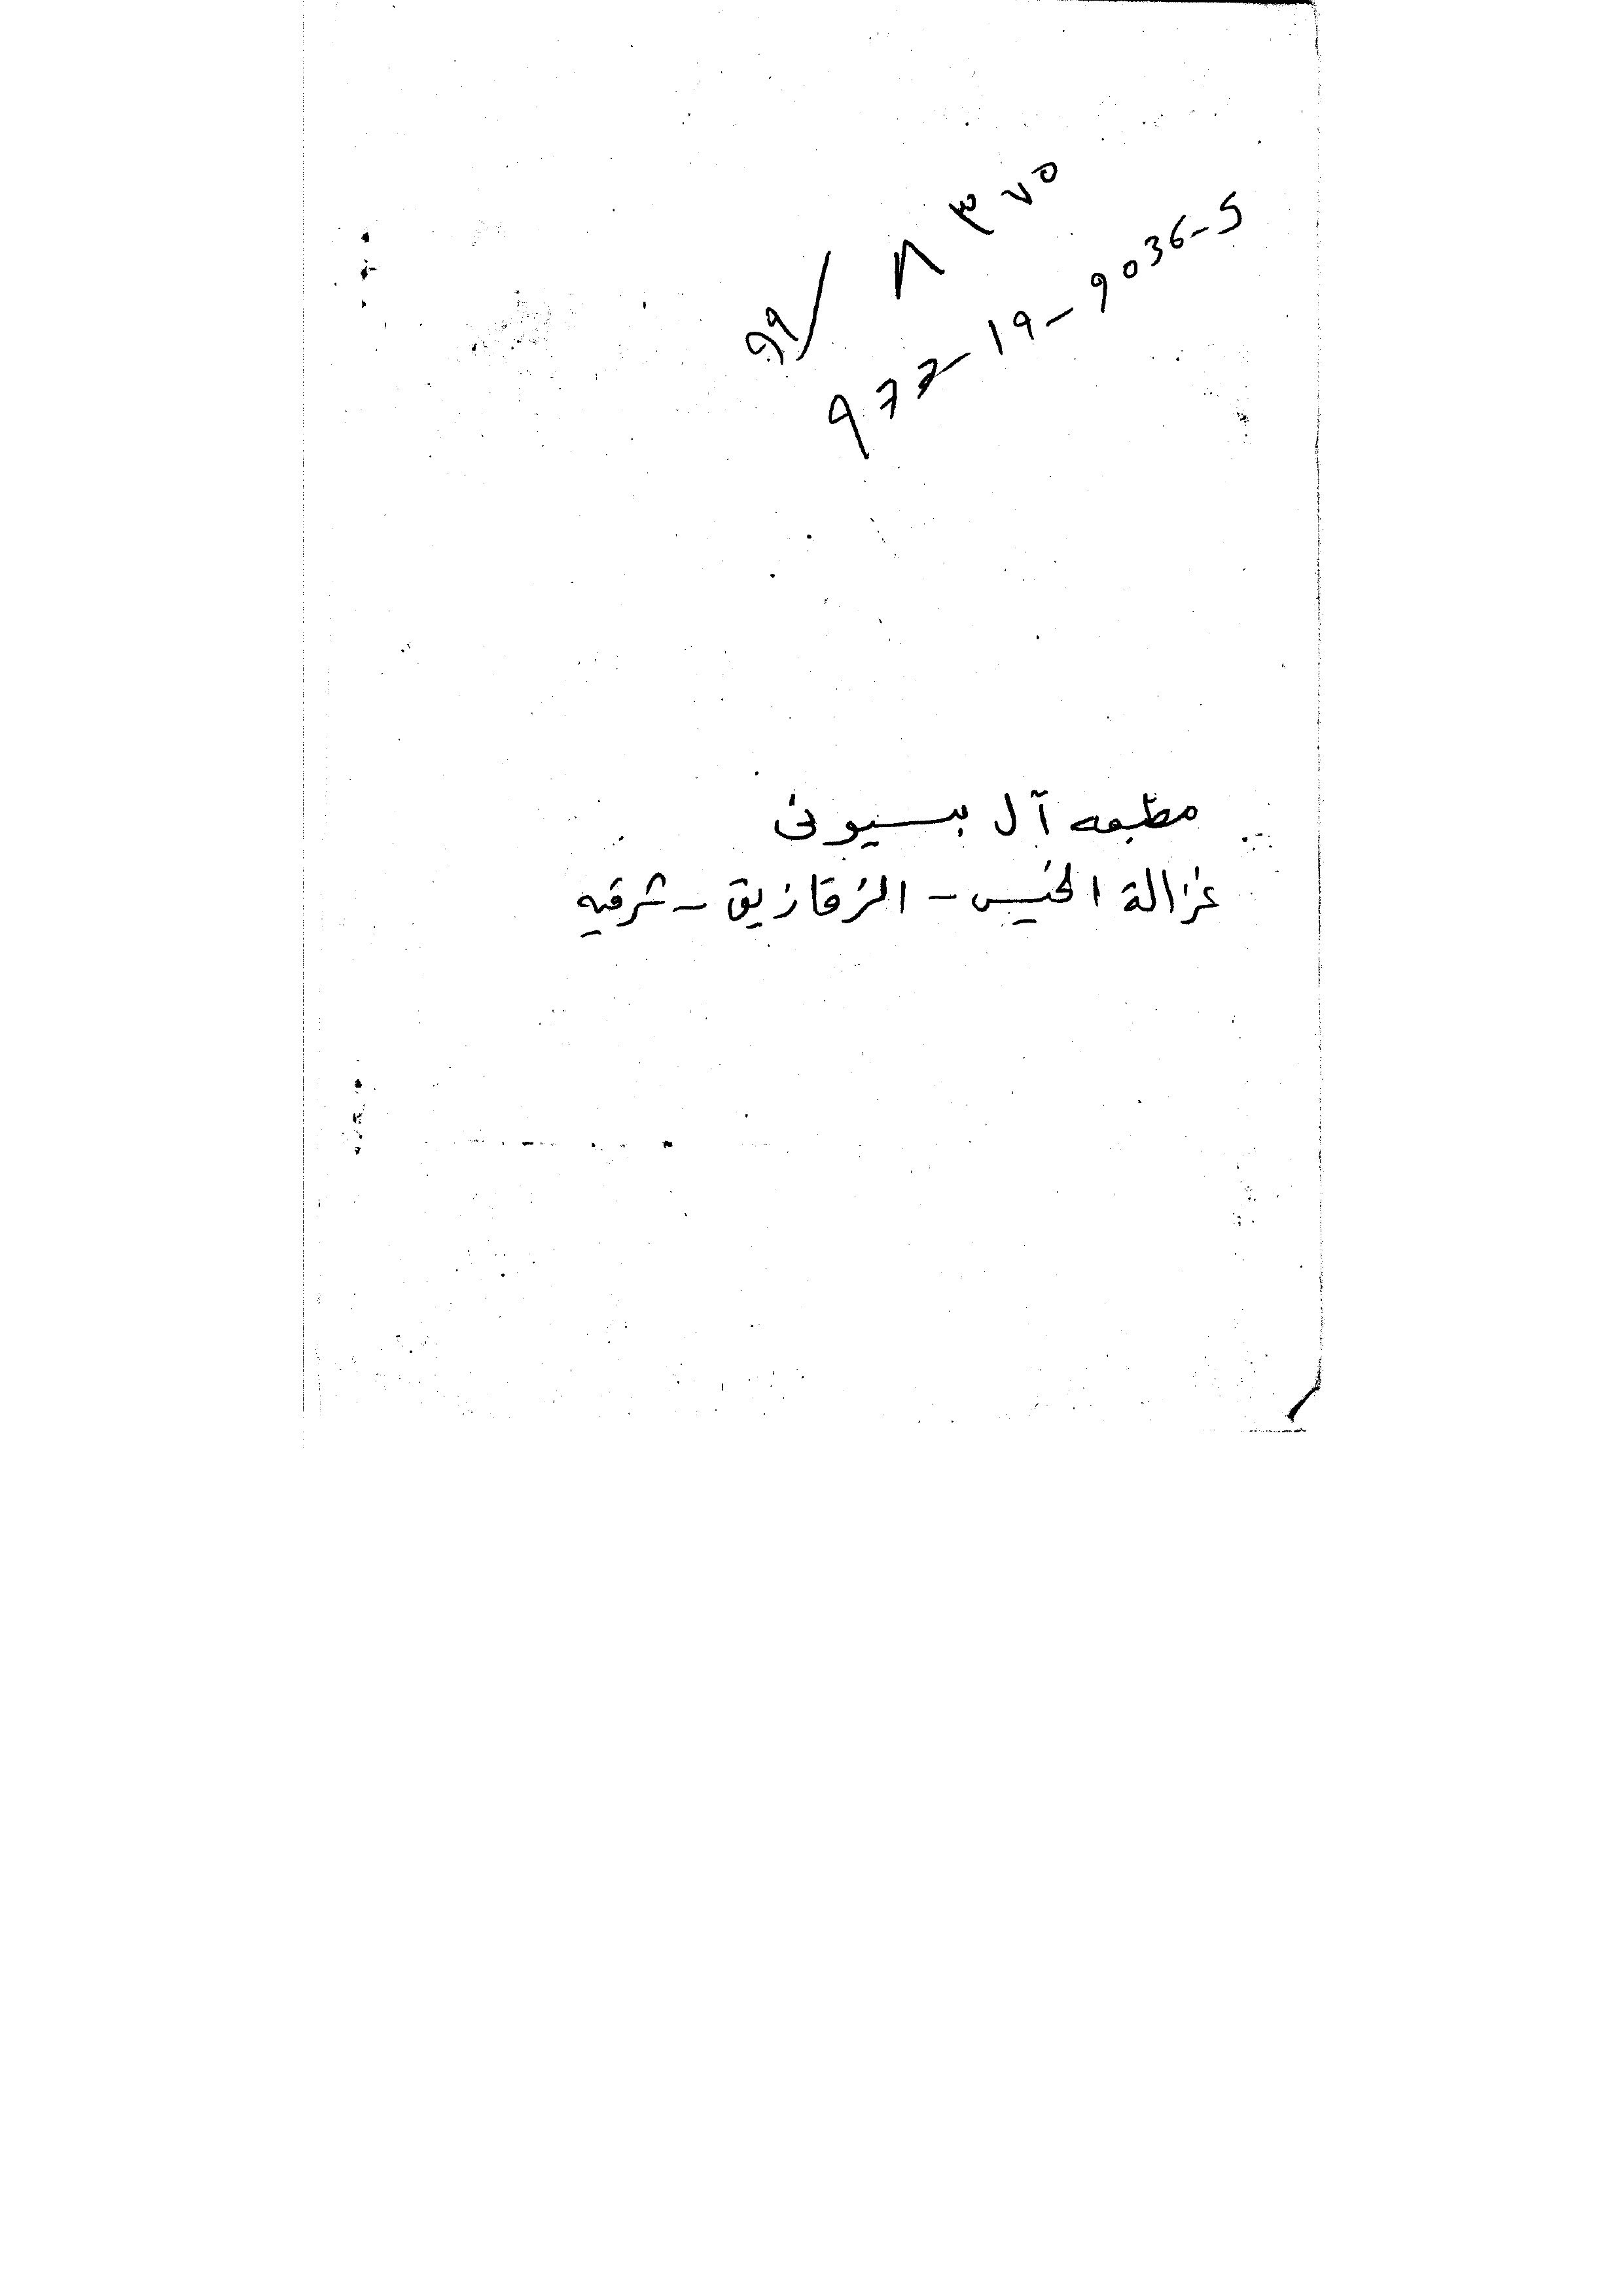 ٨٣٧٥ / ٩٩
977-19-9036-5
مطبعه آل بسيونى
غزالة الخيس - الزقازيق - شرقيه